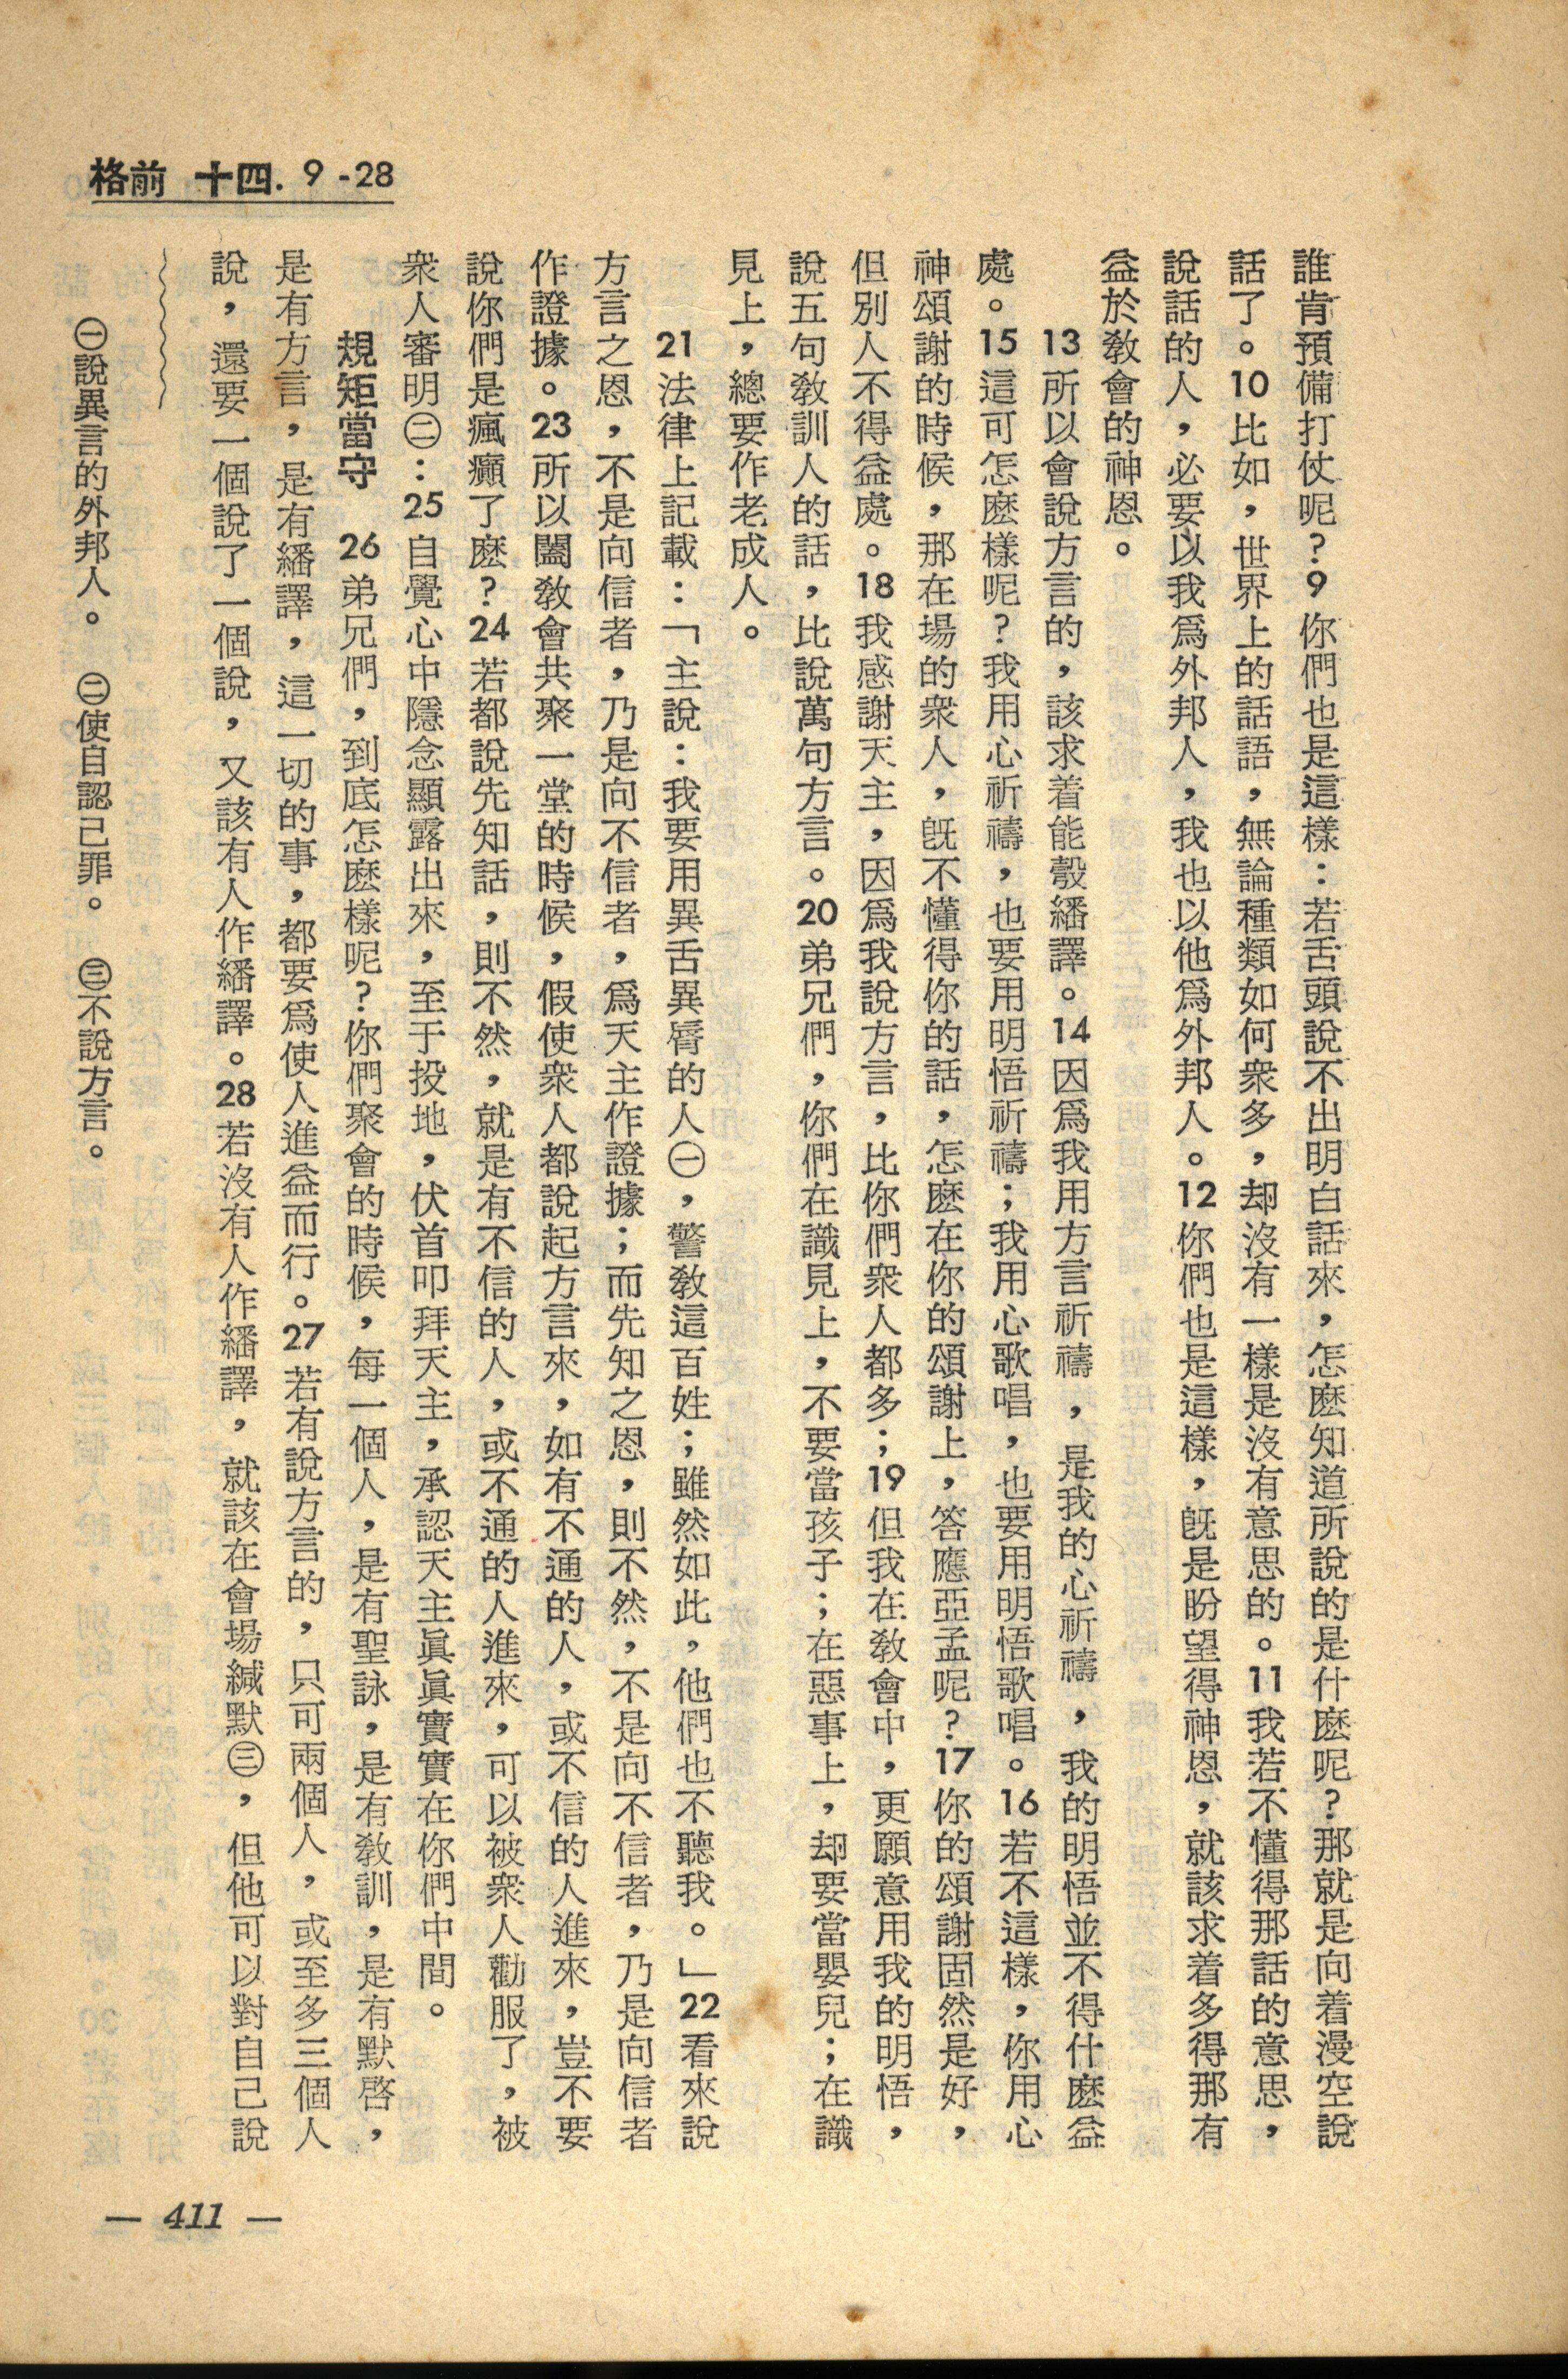 格前 十四. 9-28
誰肯預備打仗呢?9你們也是這樣:若舌頭說不出明白話來,怎麽知道所說的是什麽呢?那就是向着漫空說
話了。10比如,世界上的話語,無論種類如何衆多,却沒有一樣是沒有意思的。11我若不懂得那話的意思,
說話的人,必要以我爲外邦人,我也以他爲外邦人。12你們也是這樣,旣是盼望得神恩,就該求着多得那有
益於敎會的神恩。
13所以會說方言的,該求着能彀繙譯。14因爲我用方言祈禱,是我的心祈禱,我的明悟並不得什麽益
處。15這可怎麽樣呢?我用心祈禱,也要用明悟祈禱;我用心歌唱,也要用明悟歌唱。16若不這樣,你用心
神頌謝的時候,那在場的衆人,旣不懂得你的話,怎麽在你的頌謝上,答應亞孟呢?17你的頌謝固然是好,
但別人不得益處。18我感謝天主,因爲我說方言,比你們衆人都多;19但我在敎會中,更願意用我的明悟,
說五句敎訓人的話,比說萬句方言。20弟兄們,你們在識見上,不要當孩子;在惡事上,却要當嬰兒;在識
見上,總要作老成人。
21法律上記載:「主說:我要用異舌異脣的人㊀,警敎這百姓;雖然如此,他們也不聽我。」22看來說
方言之恩,不是向信者,乃是向不信者,爲天主作證據;而先知之恩,則不然,不是向不信者,乃是向信者
作證據。23所以闔敎會共聚一堂的時候,假使衆人都說起方言來,如有不通的人,或不信的人進來,豈不要
說你們是瘋癲了麽?24若都說先知話,則不然,就是有不信的人,或不通的人進來,可以被衆人勸服了,被
衆人審明㊁:25自覺心中隱念顯露出來,至于投地,伏首叩拜天主,承認天主眞眞實實在你們中間。
規矩當守 26弟兄們,到底怎麽樣呢?你們聚會的時候,每一個人,是有聖詠,是有敎訓,是有默啓,
是有方言,是有繙譯,這一切的事,都要爲使人進益而行。27若有說方言的,只可兩個人,或至多三個人
說,還要一個說了一個說,又該有人作繙譯。28若沒有人作繙譯,就該在會場緘默㊂,但他可以對自己說
㊀說異言的外邦人。 ㊁使自認己罪。 ㊂不說方言。
— 411 —